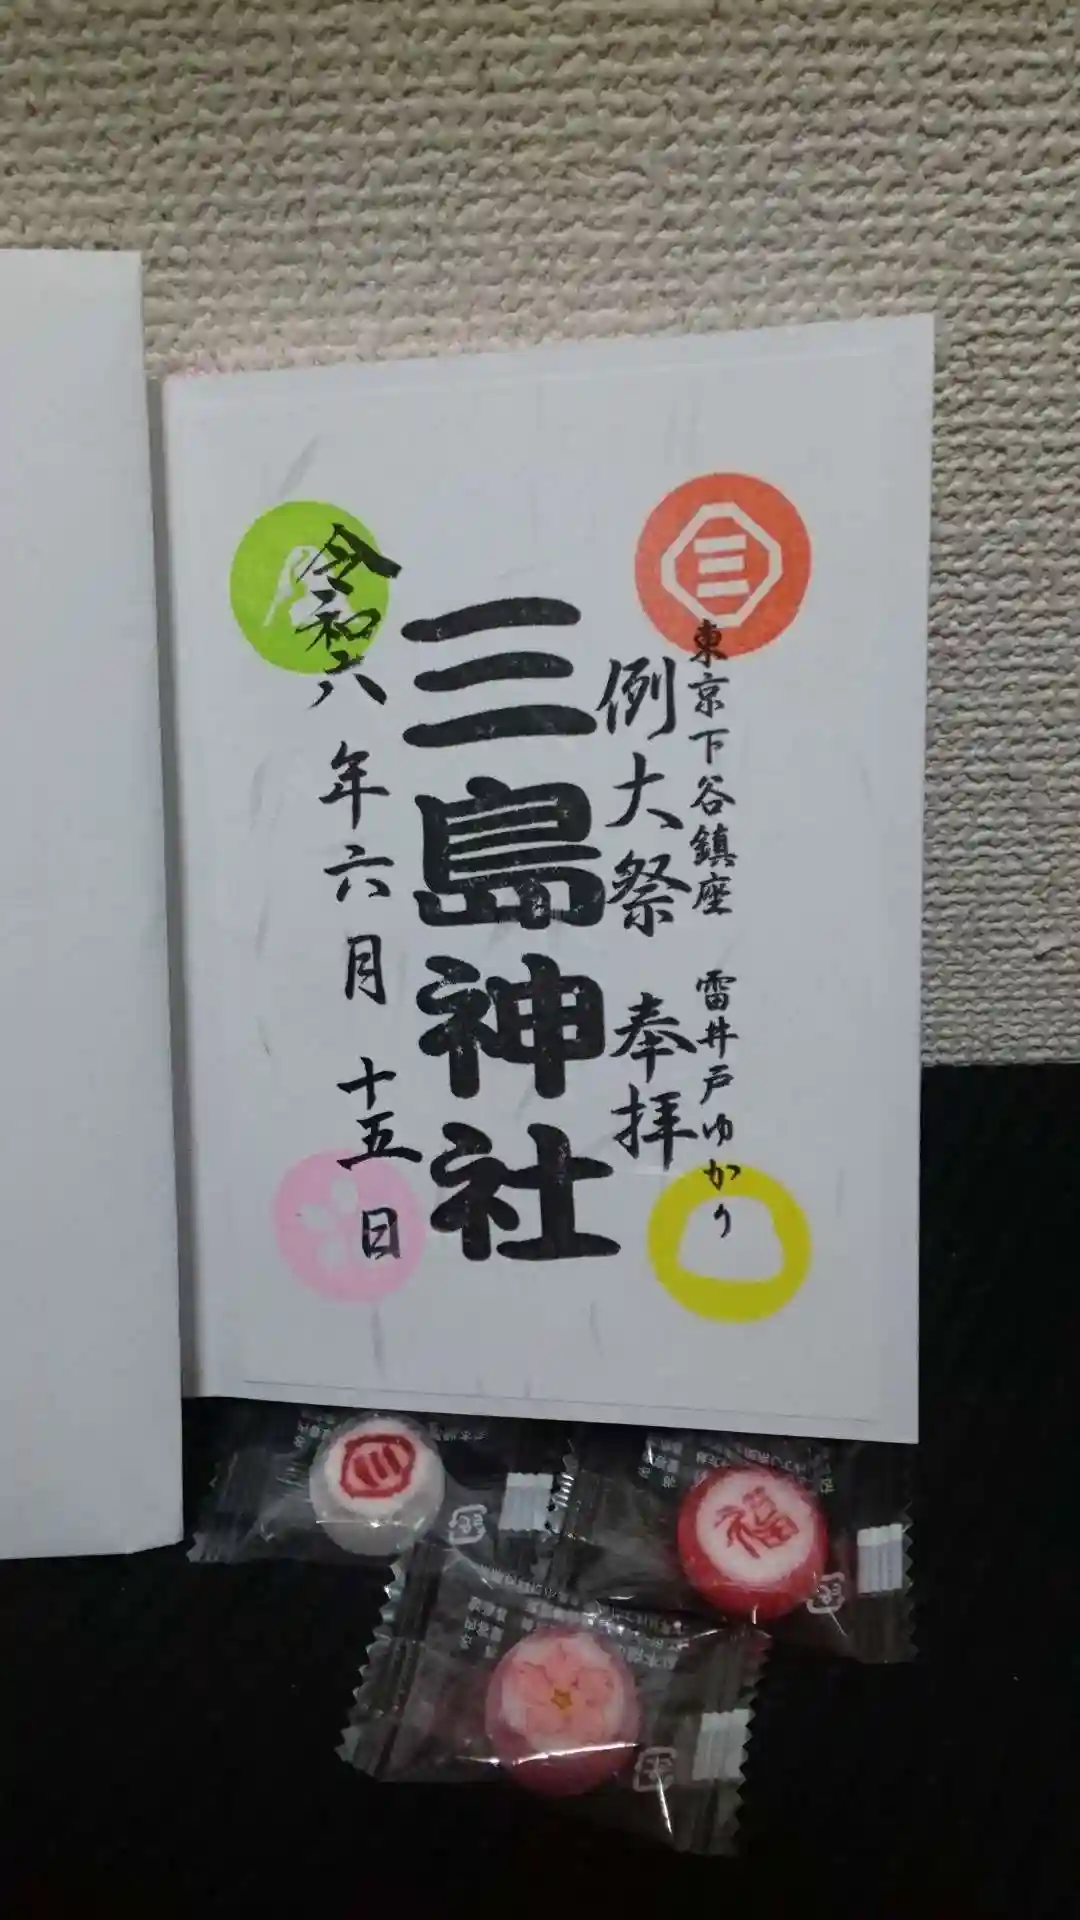 東京下谷鎮座 雷井戸ゆかり
例大祭 奉拝
三島神社
令和六年六月十五日
三
三
福